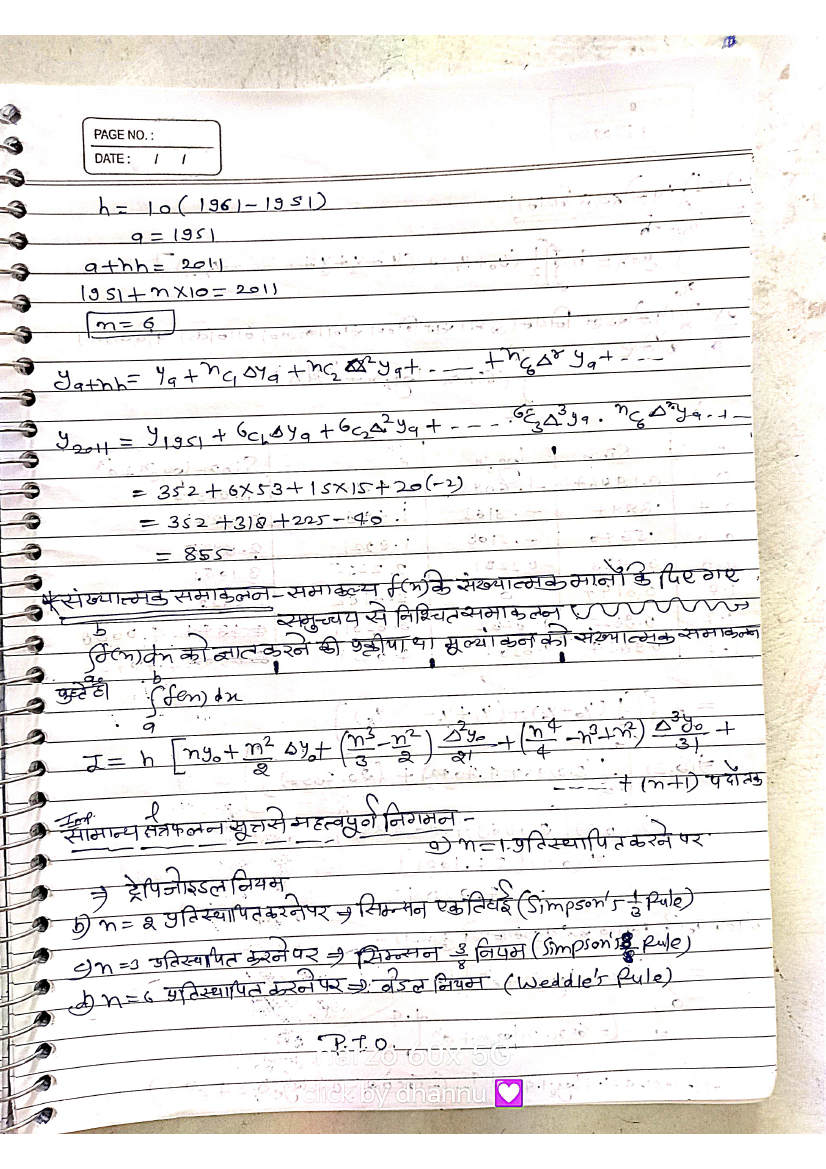 PAGE NO. :
DATE : / /
h = 10 ( 1961 - 1951)
a = 1951
a+nh = 2011
1951 + n×10 = 2011
n = 6
y_{a+nh} = y_a + ^nC_1 Δy_a + ^nC_2 Δ²y_a + - - - - + ^nC_6 Δ^r y_a + - - -
y_{2011} = y_{1951} + 6C_1 Δy_a + 6C_2 Δ²y_a + - - - - 6C_3 Δ³y_a . ^nC_6 Δ^r y_a . + -
= 352 + 6×53 + 15×15 + 20(-2)
= 352 + 318 + 225 - 40 .
= 855
* संख्यात्मक समाकलन - समाकल्य f(n) के संख्यात्मक मानों के दिए गए
समुच्चय से निश्चित समाकलन
∫_a^b f(n) dn को ज्ञात करने की या मूल्यांकन को संख्यात्मक समाकलन
∫_a^b f(n) dx
I = h [ ny_0 + n²/2 Δy_0 + (n³/3 - n²/2) Δ²y_0/2! + (n⁴/4 - n³ + n²) Δ³y_0/3! +
- - - - + (n+1) पदों तक
Imp.
सामान्य क्षेत्रफलन सूत्र से महत्वपूर्ण निगमन -
a) n = 1 प्रतिस्थापित करने पर
⇒ ट्रेपिजोइडल नियम
b) n = 2 प्रतिस्थापित करने पर ⇒ सिम्सन एक तिहाई (Simpson's 1/3 Rule)
c) n = 3 प्रतिस्थापित करने पर ⇒ सिम्सन 3/8 नियम (Simpson's 3/8 Rule)
d) n = 6 प्रतिस्थापित करने पर ⇒ वेडल नियम (Weddle's Rule)
P.T.O.
narzo 60x 5G
click by dhannu